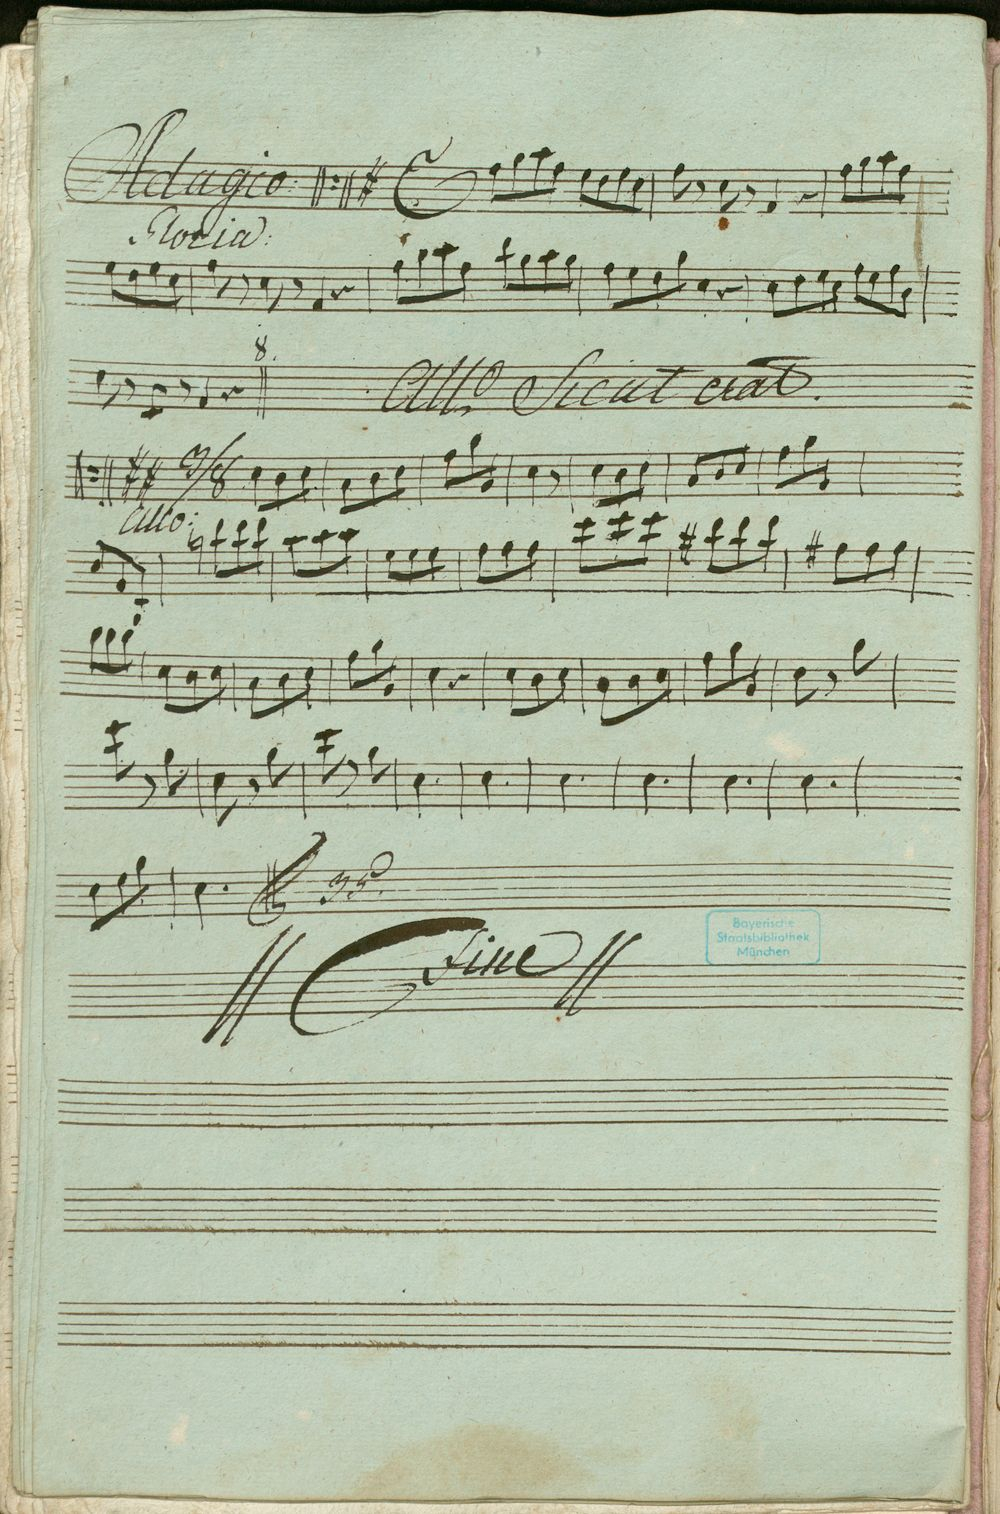 Adagio:
Gloria:
8.
All.o Sicut erat.
3/8
Allo:
35.
Fine
Bayerische
Staatsbibliothek
München